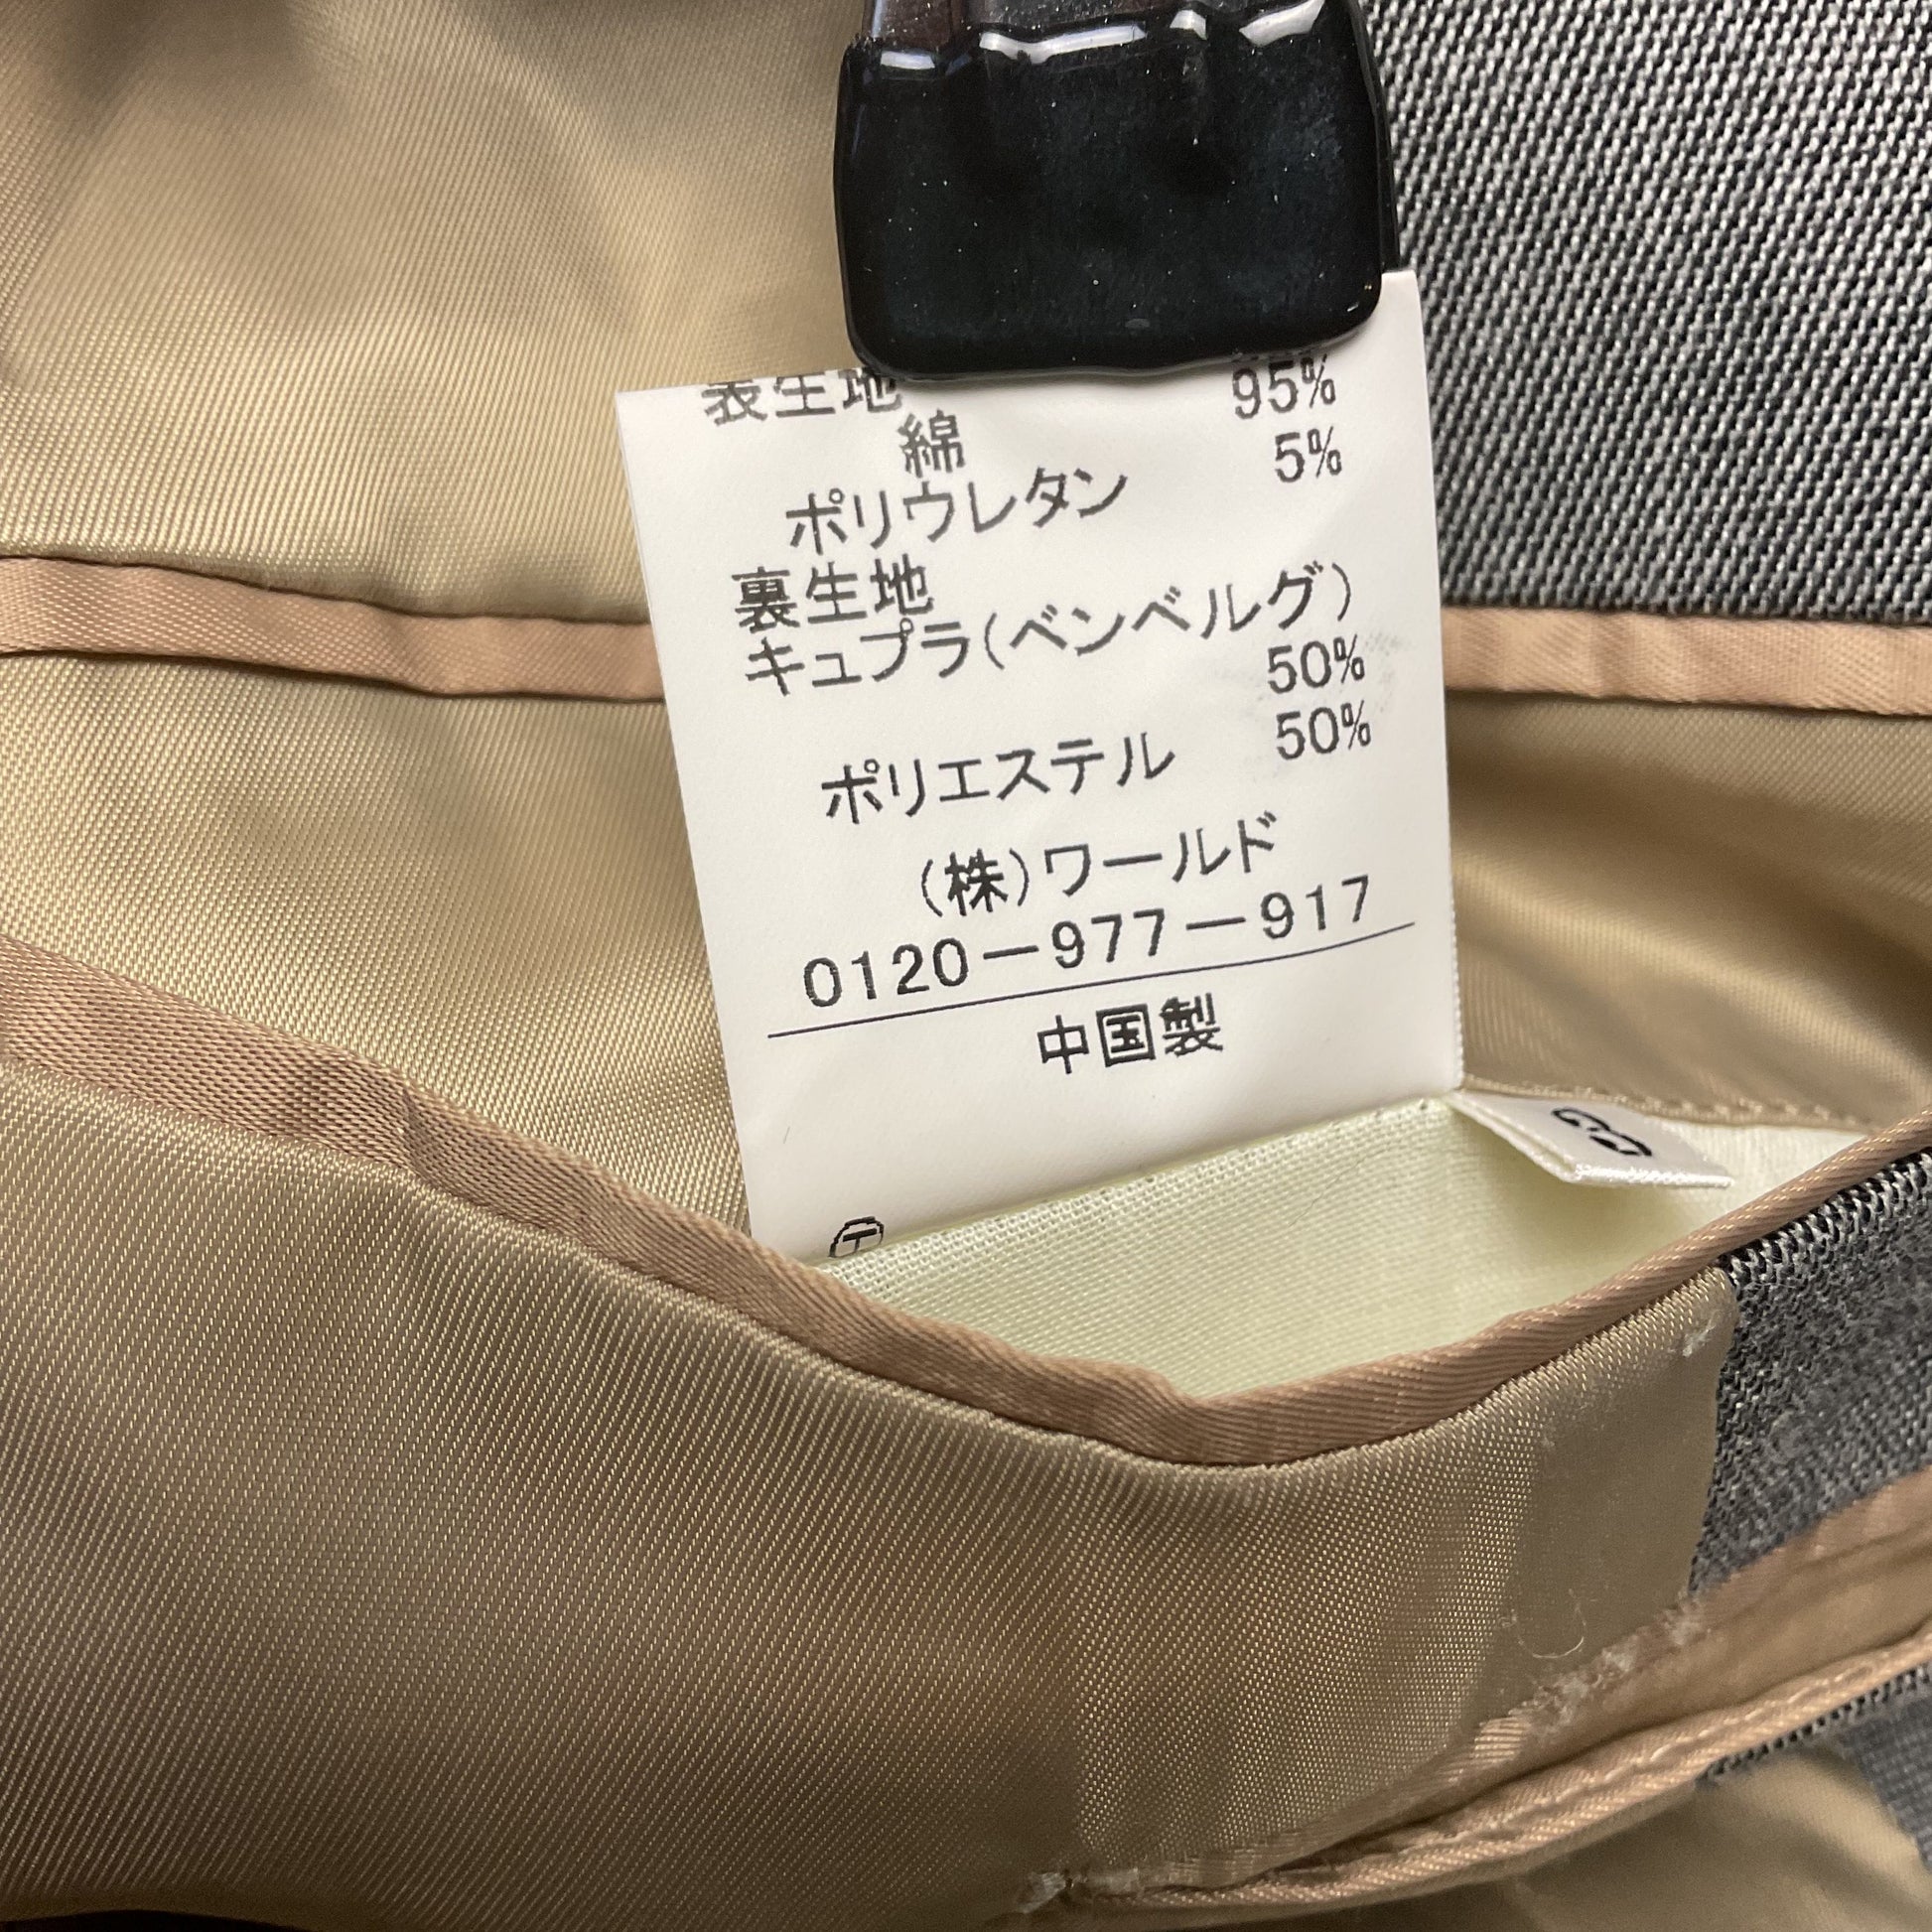 表生地
綿 95%
ポリウレタン 5%
裏生地
キュプラ(ベンベルグ)
50%
ポリエステル 50%
(株)ワールド
0120-977-917
中国製
Ⓣ